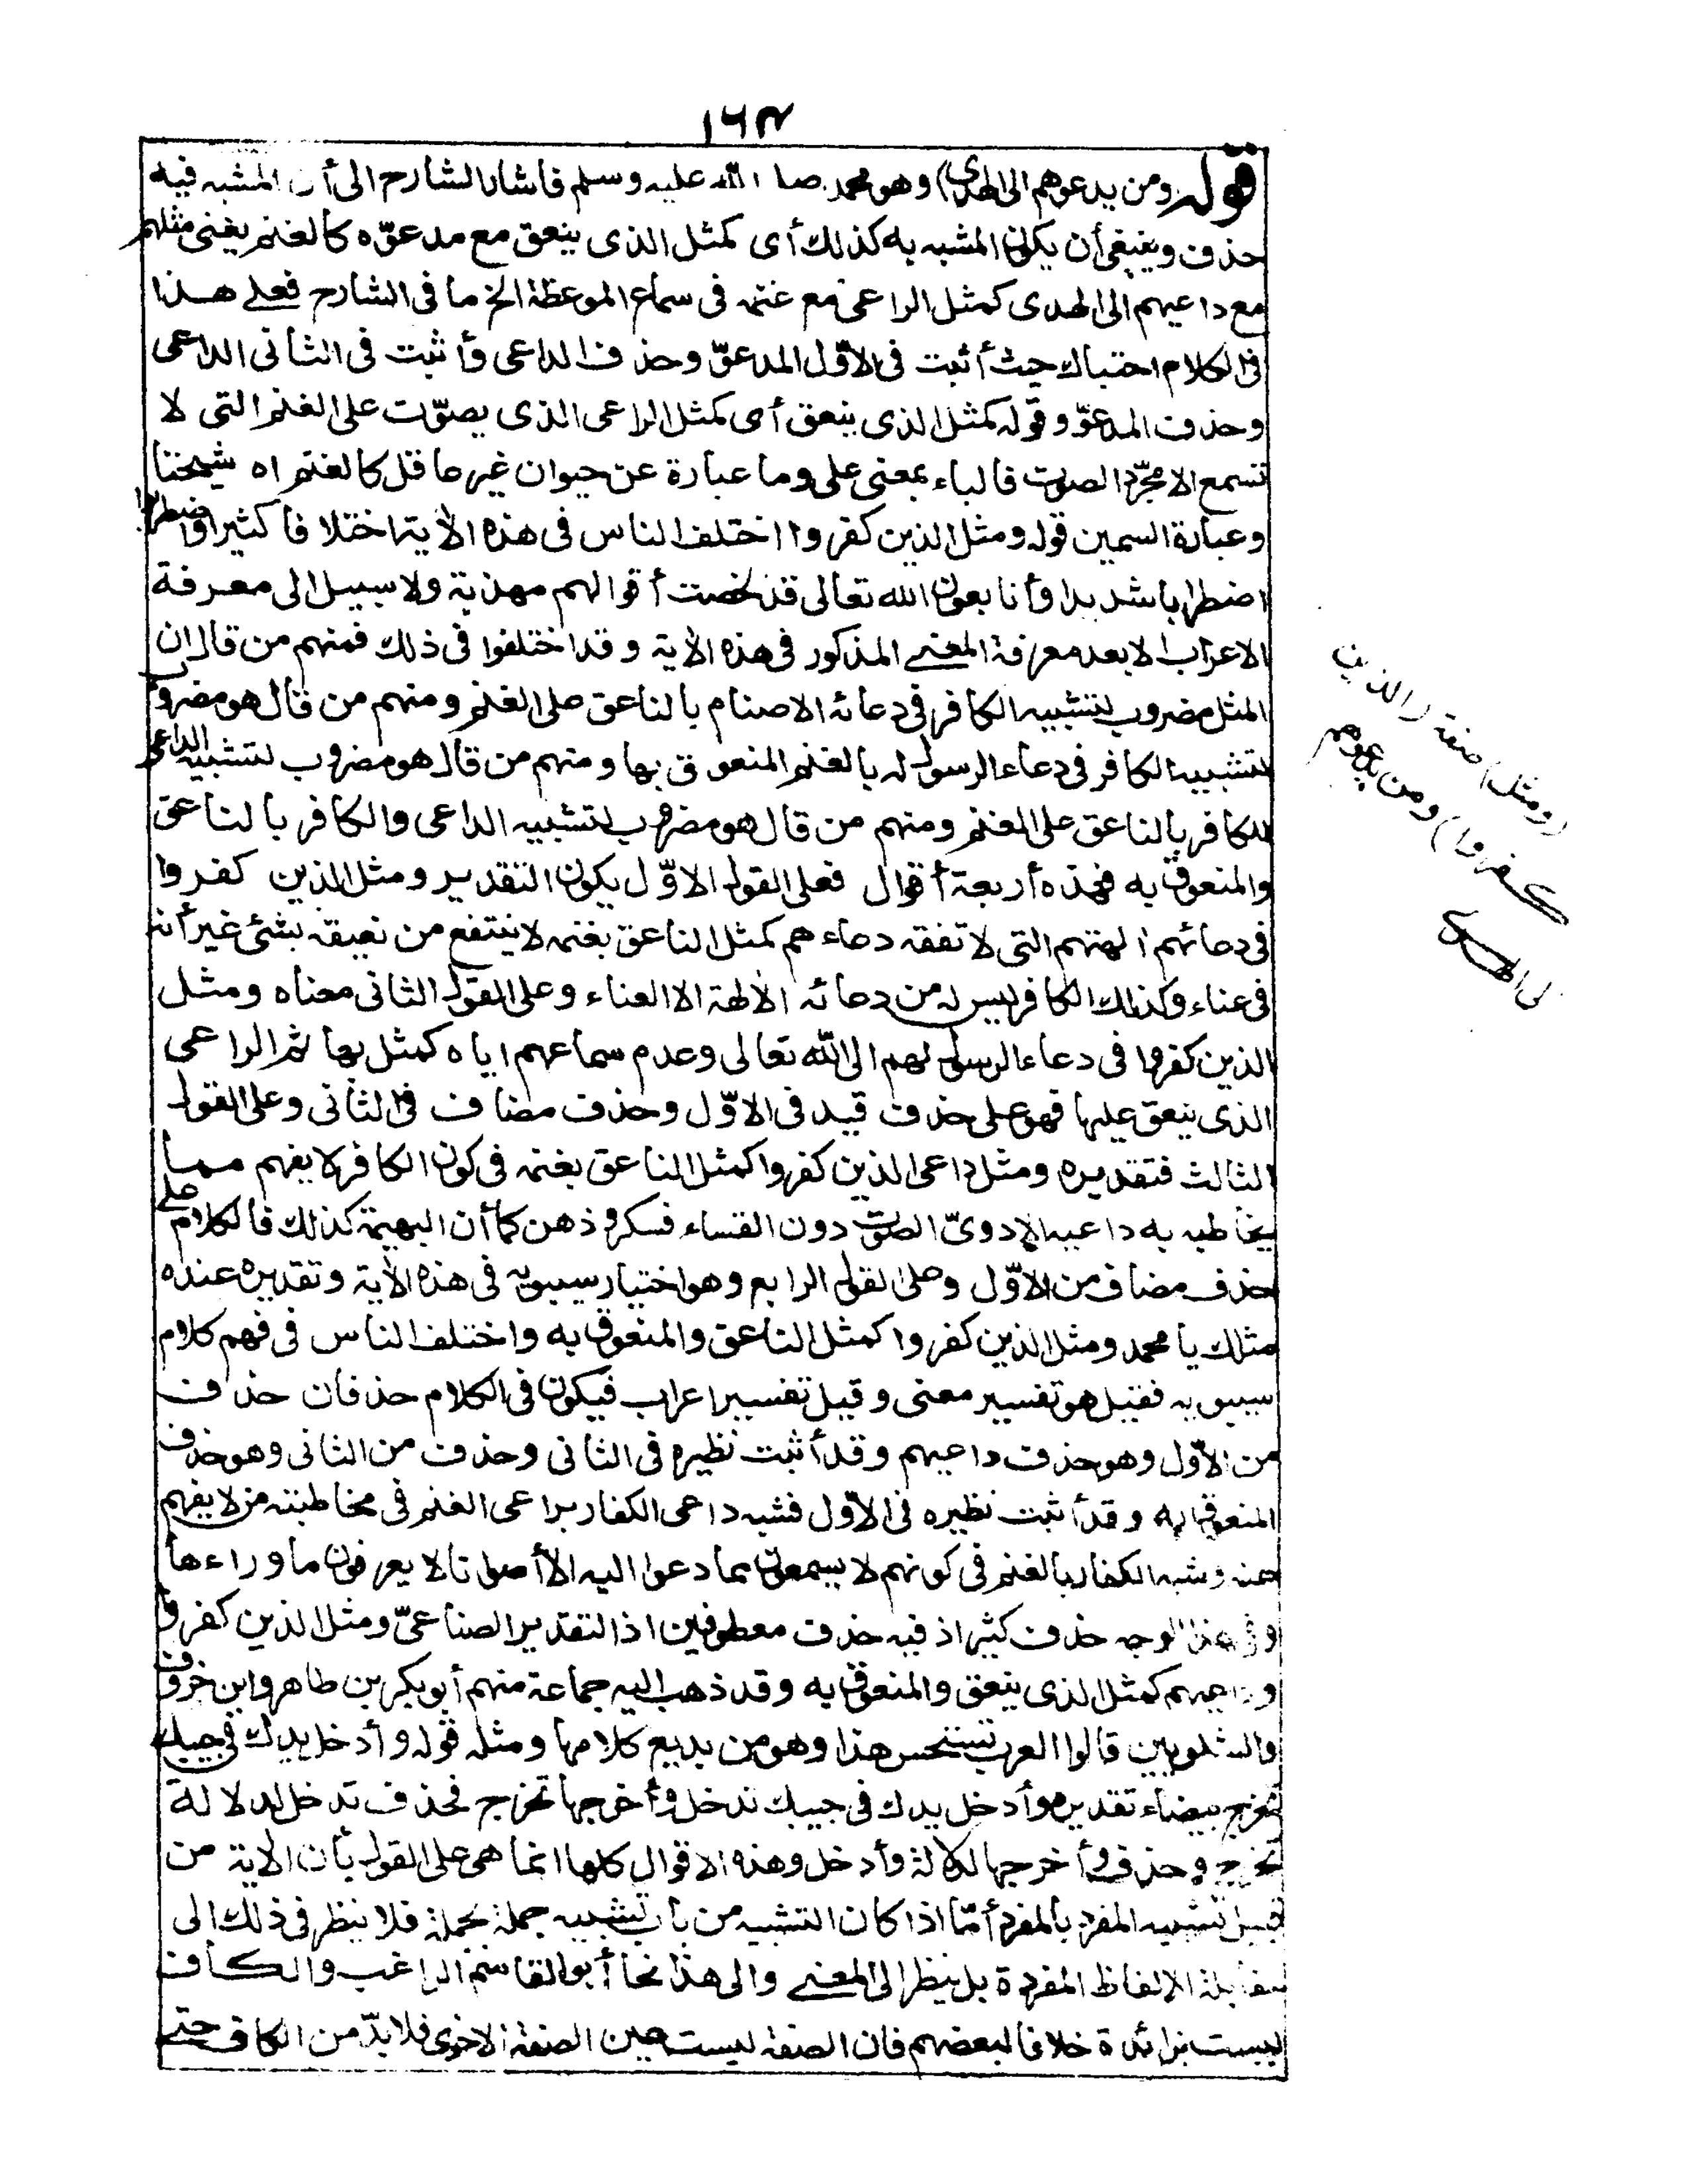 ١٦٣
قوله ومن يدعوهم الى الهدى) وهو محمد صلى الله عليه وسلم فاشار الشارح الى أن المشبه فيه
حذف وينبغى أن يكون المشبه به كذلك أى كمثل الذى ينعق مع مدعوّه كالغنم يعنى مثلهم
مع داعيهم الى الهدى كمثل الراعى مع غنمه فى سماع الموعظة الخ ما فى الشارح فعلى هذا
فى الكلام احتباك حيث أثبت فى الاوّل المدعوّ وحذف الداعى وأثبت فى الثانى الداعى
وحذف المدعوّ وقوله كمثل الذى ينعق أى كمثل الراعى الذى يصوّت على الغنم التى لا
تسمع الا مجرّد الصوت فالباء بمعنى على وما عبارة عن حيوان غير عاقل كالغنم اه شيخنا
وعبارة السمين قوله ومثل الذين كفروا اختلف الناس فى هذه الأية اختلافا كثيرا واضطربوا
اضطرابا شديدا وأنا بعون الله تعالى قد لخصت أقوالهم مهذبة ولا سبيل الى معرفة
الاعراب الا بعد معرفة المعنى المذكور فى هذه الأية وقد اختلفوا فى ذلك فمنهم من قال ان
المثل مضروب لتشبيه الكافر فى دعائه الاصنام بالناعق على الغنم ومنهم من قال هو مضروب
لتشبيه الكافر فى دعاء الرسول له بالغنم المنعوق بها ومنهم من قال هو مضروب لتشبيه الداعى
للكافر بالناعق على الغنم ومنهم من قال هو مضروب لتشبيه الداعى والكافر بالناعق
والمنعوق به فهذه أربعة أقوال فعلى القول الاوّل يكون التقدير ومثل الذين كفروا
فى دعائهم الهتهم التى لا تفقه دعاءهم كمثل الناعق بغنمه لا ينتفع من نعيقه بشئ غير أنه
فى عناء وكذلك الكافر ليس له من دعائه الألهة الا العناء وعلى القول الثانى معناه ومثل
الذين كفروا فى دعاء الرسول لهم الى الله تعالى وعدم سماعهم اياه كمثل بهائم الراعى
الذى ينعق عليها فهو على حذف قيد فى الاوّل وحذف مضاف فى الثانى وعلى القول
الثالث فتقديره ومثل داعى الذين كفروا كمثل الناعق بغنمه فى كون الكافر لا يفهم مما
يخاطبه به داعيه الا دوىّ الصوت دون القساء فسكر وذهن كما أن البهيمة كذلك فالكلام على
حذف مضاف من الاوّل وعلى القول الرابع وهو اختيار سيبويه فى هذه الأية وتقديره عنده
مثلك يا محمد ومثل الذين كفروا كمثل الناعق والمنعوق به واختلف الناس فى فهم كلام
سيبويه فقيل هو تفسير معنى وقيل تفسير اعراب فيكون فى الكلام حذفان حذف
من الاوّل وهو حذف داعيهم وقد أثبت نظيره فى الثانى وحذف من الثانى وهو حذف
المنعوق به وقد أثبت نظيره فى الاوّل فشبه داعى الكفار براعى الغنم فى مخاطبته من لا يفهم
عنه وشبه الكفار بالغنم فى كونهم لا يسمعون مما دعوا اليه الأ أصواتا لا يعرفون ما وراءها
وفى هذا الوجه حذف كثير اذ فيه حذف معطوفين اذ التقدير الصناعىّ ومثل الذين كفروا
وداعيهم كمثل الذى ينعق والمنعوق به وقد ذهب اليه جماعة منهم أبو بكر بن طاهر وابن خروف
والشلوبين قالوا العرب تستحسن هذا وهو من بديع كلامها ومثله قوله وأدخل يدك فى جيبك
تخرج بيضاء تقديره وأدخل يدك فى جيبك تدخل وأخرجها تخرج فحذف تدخل لدلالة
تخرج وحذف وأخرجها لدلالة وأدخل وهذه الاقوال كلها انما هى على القول بأن الاية من
قبيل تشبيه المفرد بالمفرد أمّا اذا كان التشبيه من باب تشبيه جملة بجملة فلا ينظر فى ذلك الى
مقابلة الالفاظ المفردة بل ينظر الى المعنى والى هذا نحا أبو القاسم الراغب والكاف
ليست بزائدة خلافا لبعضهم فان الصفة ليست عين الصفة الاخرى فلا بدّ من الكاف حتى
(ومثل) صفة (الذين
كفروا) ومن يدعوهم
الى الهدى